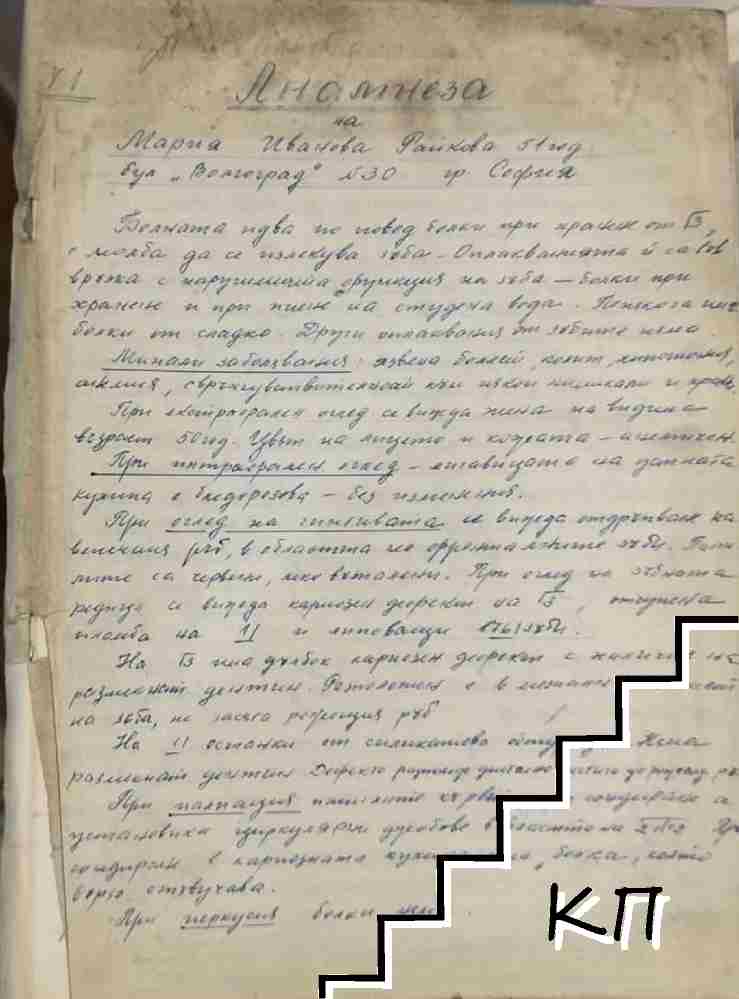 №1
Анамнеза
на
Мария Иванова Райкова 51 год.
бул. „Волгоград" №30 гр. София
Болната идва по повод болки при хранене от Г3,
с молба да се излекува зъба. Оплакванията ѝ са във
връзка с нарушената функция на зъба – болки при
хранене и при пиене на студена вода. Понякога има
болки от сладко. Други оплаквания от зъбите няма.
Минали заболявания: язвена болест, колит, хипотония,
анемия, свръхчувствителност към някои миризми и храни.
При екстраорален оглед се вижда жена на видима
възраст 50 год. Цвят на лицето и кожата – анемичен.
При интраорален оглед – лигавицата на устната
кухина е бледорозова – без изменения.
При оглед на гингивата се вижда отдръпване на
венечния ръб, в областта на фронталните зъби.
са червени, леко оголени. При оглед на зъбната
редица се вижда кариозен дефект на Г3, отчупена
пломба на 1| и липсващи зъби.
На Г3 има дълбок кариозен дефект с наличие на
размекнат дентин. Разположен е в
на зъба, не засяга режещия ръб
На 1| останки от силикатова Няма
размекнат дентин Дефекта
При палпация
установиха циркулярни джобове в областта на При
сондиране в кариозната болка, която
бързо отзвучава.
При перкусия болки няма.
КП